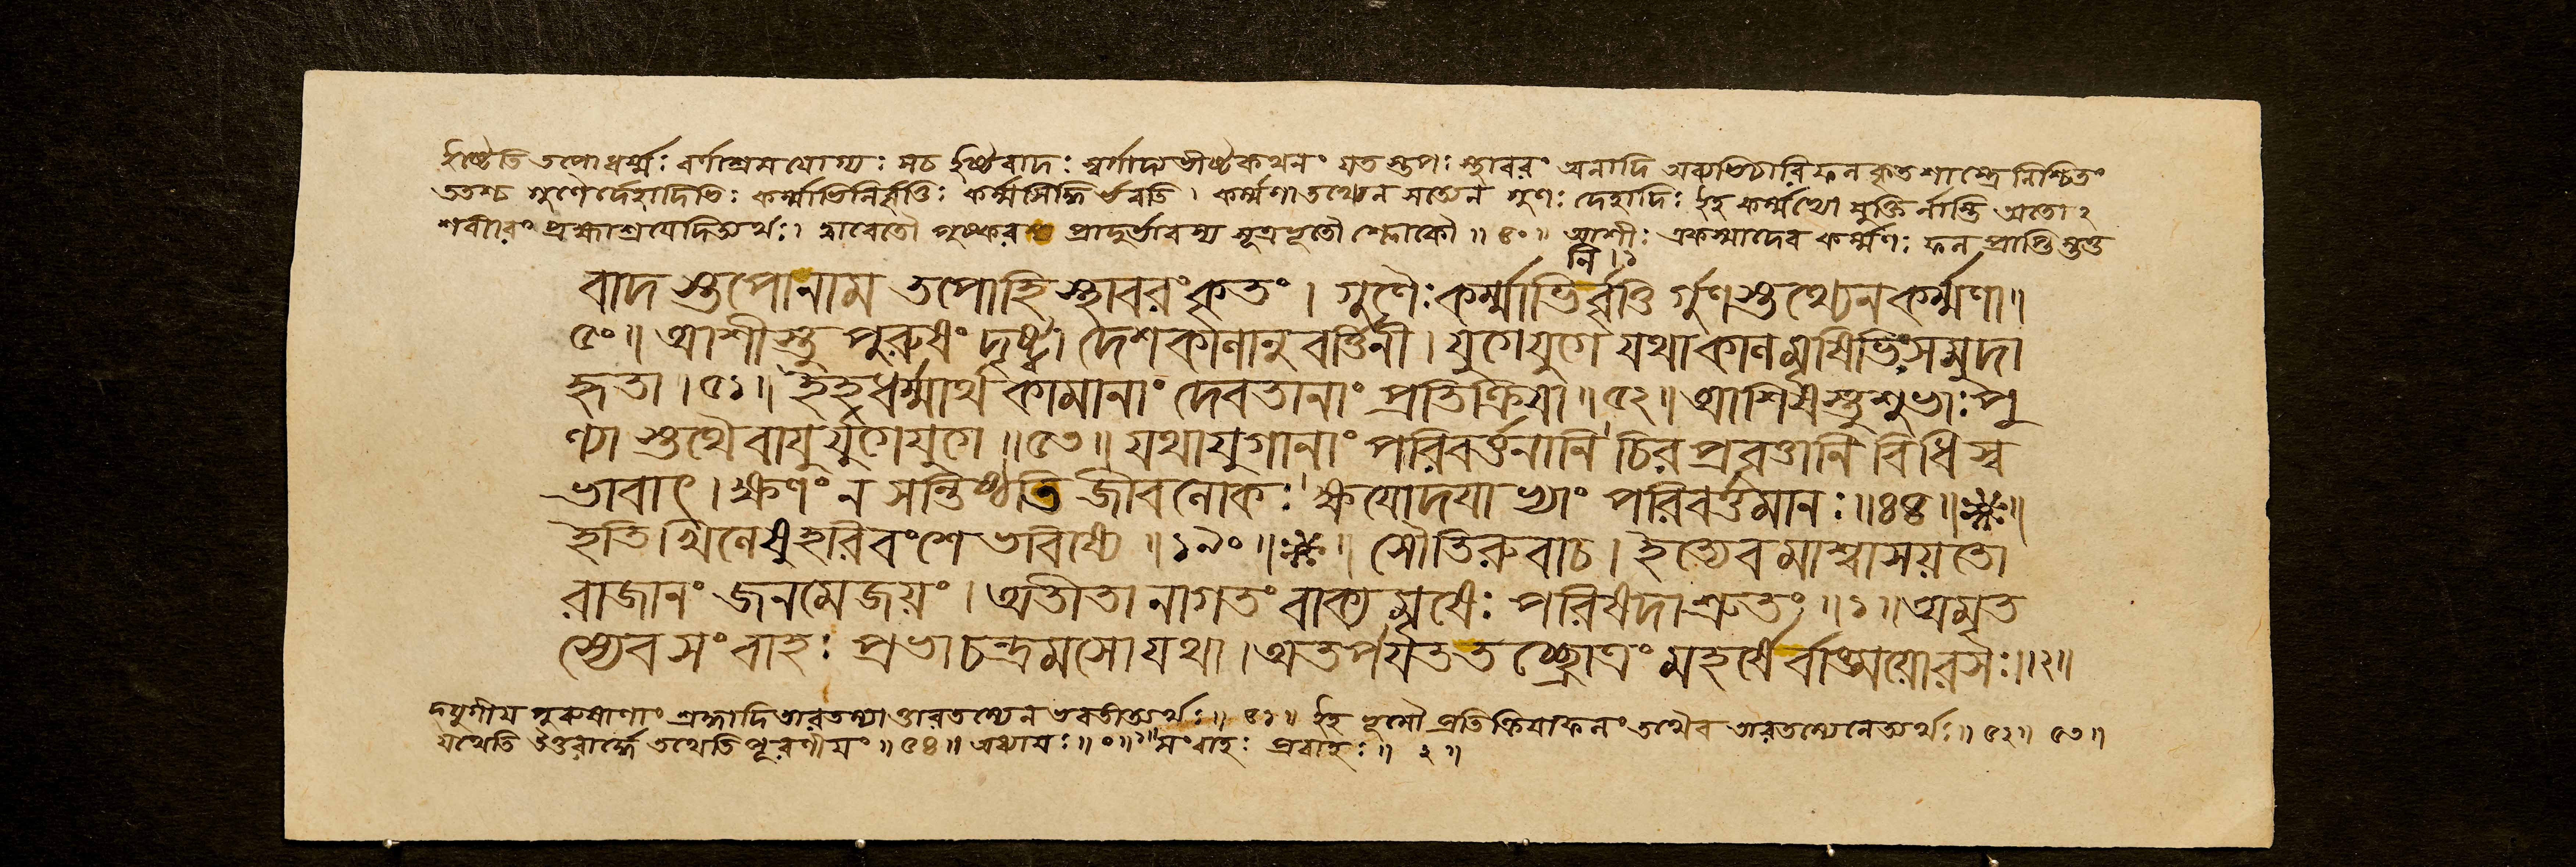 ইষ্টেতি তপোধর্ম্মঃ বর্ণাশ্রমযোগ্যঃ সচ ইষ্টিবাদঃ স্বর্গাদ্যভীষ্টকথনং যতস্তপঃ স্থাবরং অনাদি অব্যভিচারিফলং কৃতশাস্ত্রে নিশ্চিতং
ততশ্চ গুণৈর্দেহাদিভিঃ কর্ম্মাভিনির্বৃত্তিঃ কর্ম্মসিদ্ধির্ভবতি । কর্ম্মণা তথ্যেন সত্যেন গুণঃ দেহাদিঃ ইহ কর্ম্মতো মুক্তির্নাস্তি অতো২
শরীরং ব্রহ্মাশ্রয়েদিত্যর্থঃ । দ্বাবেতৌ পুষ্কর প্রাদুর্ভাবস্য সূত্রভূতৌ শ্লোকৌ ॥ ৫০ ॥ আশীঃ একস্মাদেব কর্ম্মণঃ ফল প্রাপ্তিস্তুত
নি । ১
বাদ স্তপোনাম তপোহি স্থাবরং কৃতং । গুণৈঃ কর্ম্মাভির্বৃত্তি র্গুণস্তথ্যেন কর্ম্মণা ॥
৫০ ॥ আশীস্তু পুরুষং দৃষ্ট্বা দেশকালানুবর্ত্তিনী । যুগে যুগে যথাকালমৃষিভিঃ সমুদা
হৃতা । ৫১ ॥ ইহ ধর্ম্মার্থকামানাং দেবতানাং প্রতিক্রিয়া ॥ ৫২ ॥ আশিষস্তু শুভাঃ পু
ণ্যা স্তথৈবায়ুর্যুগে যুগে ॥ ৫৩ ॥ যথা যুগানাং পরিবর্ত্তনানি চিরপ্রবৃত্তানি বিধিস্ব
ভাবাৎ । ক্ষণং ন সন্তিষ্ঠতি জীবলোকঃ ক্ষয়োদয়াভ্যাং পরিবর্ত্তমানঃ ॥ ৫৪ ॥ ※ ॥
ইতি খিলেষু হরিবংশে ভবিষ্যে ॥ ১৯০ ॥ ※ ॥ সৌতিরুবাচ । ইত্যেবমাশ্বাসয়তো
রাজানং জনমেজয়ং । অতীতানাগতং বাক্যমৃষেঃ পরিষদা শ্রুতং ॥ ১ ॥ অমৃত
স্যেব সংবাহঃ প্রভা চন্দ্রমসো যথা । অতর্পয়ত তচ্ছ্রোত্রং মহর্ষের্বাঙ্ময়োরসঃ ॥ ২ ॥
দযুগীয় পুরুষাণাং শ্রদ্ধাদিতারতম্যাত্তারতম্যেন ভবতীত্যর্থঃ ॥ ৫১ ॥ ইহ প্রতিক্রিয়াফলং তথৈব তারতম্যেনেত্যর্থঃ ॥ ৫২ ॥ ৫৩ ॥
যথেতি উত্তরার্দ্ধে তথেতি পূরণীয়ং ॥ ৫৪ ॥ অধ্যায়ঃ ॥ ০ ॥ ১ ॥ সংবাহঃ প্রবাহঃ ॥ ২ ॥